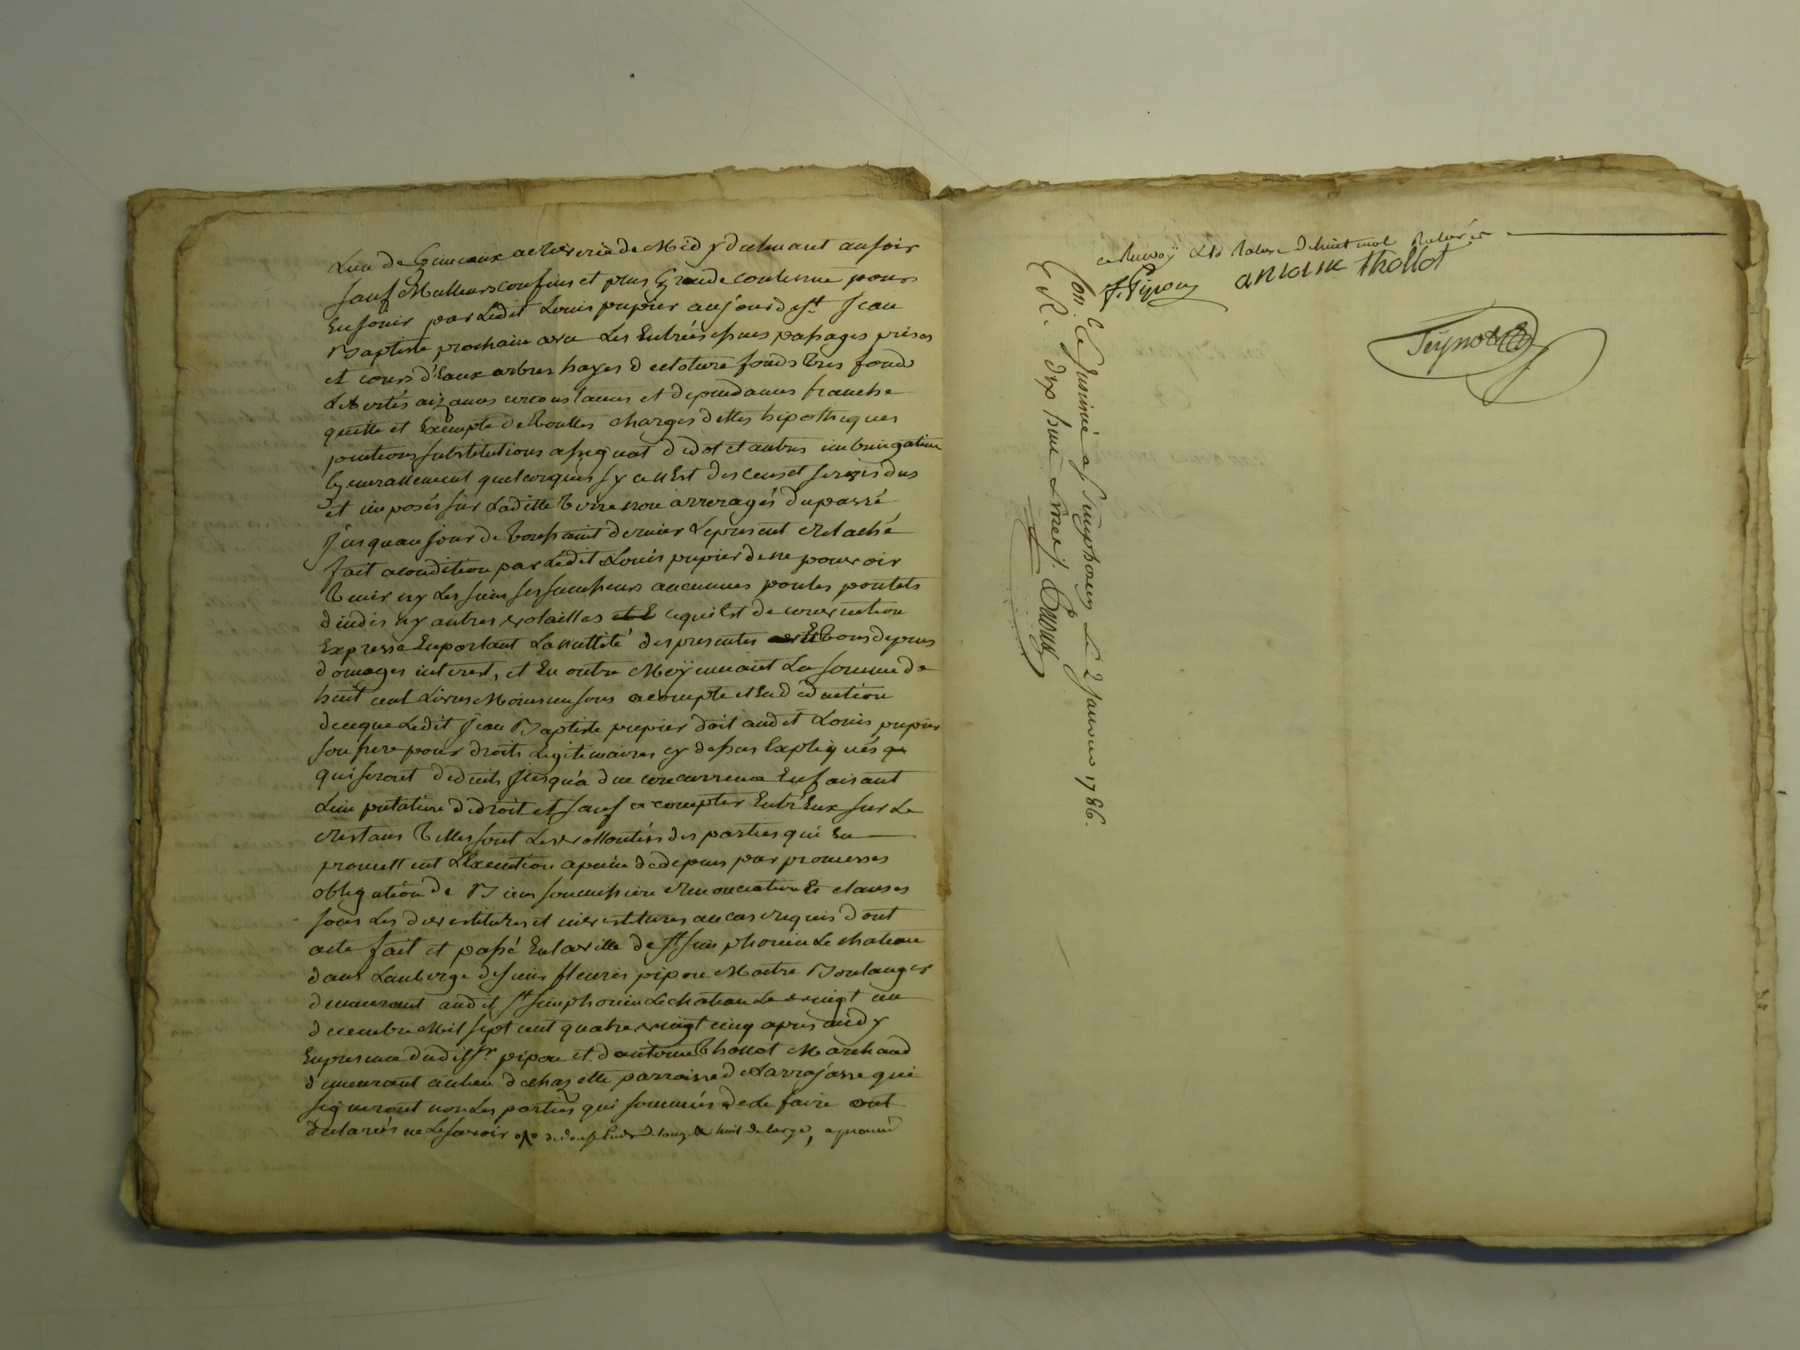 Lieu de Grimeaux achivérie de Midy dulevant ausoir
sauf Meilleurs confins et plus Grande contenue pour
En jouir par Ledit Louis pupier au jour de st Jean
Baptiste prochain avec Les Entrées issues passages prises
et cours d'Eaux arbres hayes de cloture fonds tres fonds
Libertés aizances circonstances et dependances franche
quitte et Exempte de Touttes charges dettes hipotheques
pentions substitutions assignat de dot et autres imbringations
Generallement quelconques sy ce n'Est des cens et servis dus
et imposés sur Laditte Terre non arreragés du passé
Jusqu'au jour de Toussaint dernier Le present relaché
fait acondition par Ledit Louis pupier de ne pouvoir
Tenir ny Les siens ses successeurs aucunnes poules poulets
d'indes ny autres volailles ce qui Est de convention
Expresse Emportant La nullité des presentes Tous depens
domages interest, et En outre Moÿennant La somme de
huit cent Livres Moins un sous acompte et En deduction
de ce que Ledit Jean Baptiste pupier doit audit Louis pupier
son frere pour droits Legitimaires cy dessus Expliqués
qui seront deduits Jusqu'a due concurrence En faisant
L'imputation de droit et sauf a compter Entr'Eux sur Le
restans Telles sont Les vollontés des parties qui En
promettent L'Execution a peine de depens par promesses
obligation de Biens soumission renonciation Et clauses
sous Les devestitures et investitures au cas requis dont
acte fait et passé En la ville de St Simphorien Le chateau
dans L'auberge de sieur fleuris pipon Maitre Boulanger
demeurant audit St Simphorien Le chateau Le vingt un
decembre Mil sept cent quatre vingt cinq apres midy
En presence dudit Sr pipon et d'antoine Thollot Marchand
demeurant au lieu de chazette parroisse de Larrajasse qui
signeront non Les parties qui sommés de Le faire ont
declarés ne Le savoir de long & huit de large, aprouvé
ce Renvoÿ Et la Rature de huit mot
F. Pipon antoine thollot
Con.lé Et Insinué a St Simphorien Le 2 Janvier 1786.
R. dix huit Livres